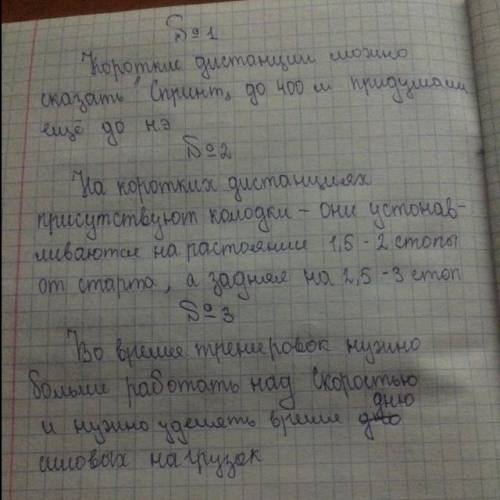 №1
Короткие дистанции можно
сказать "Спринт" до 400 м придумали
ещё до н.э
№2
На коротких дистанциях
присутствуют колодки – они устонав-
ливаются на растоянии 1,5 - 2 стопы
от старта, а задняя на 2,5 - 3 стоп
№3
Во время тренировок нужно
больше работать над Скоростью
и нужно уделять время дню
силовых нагрузок